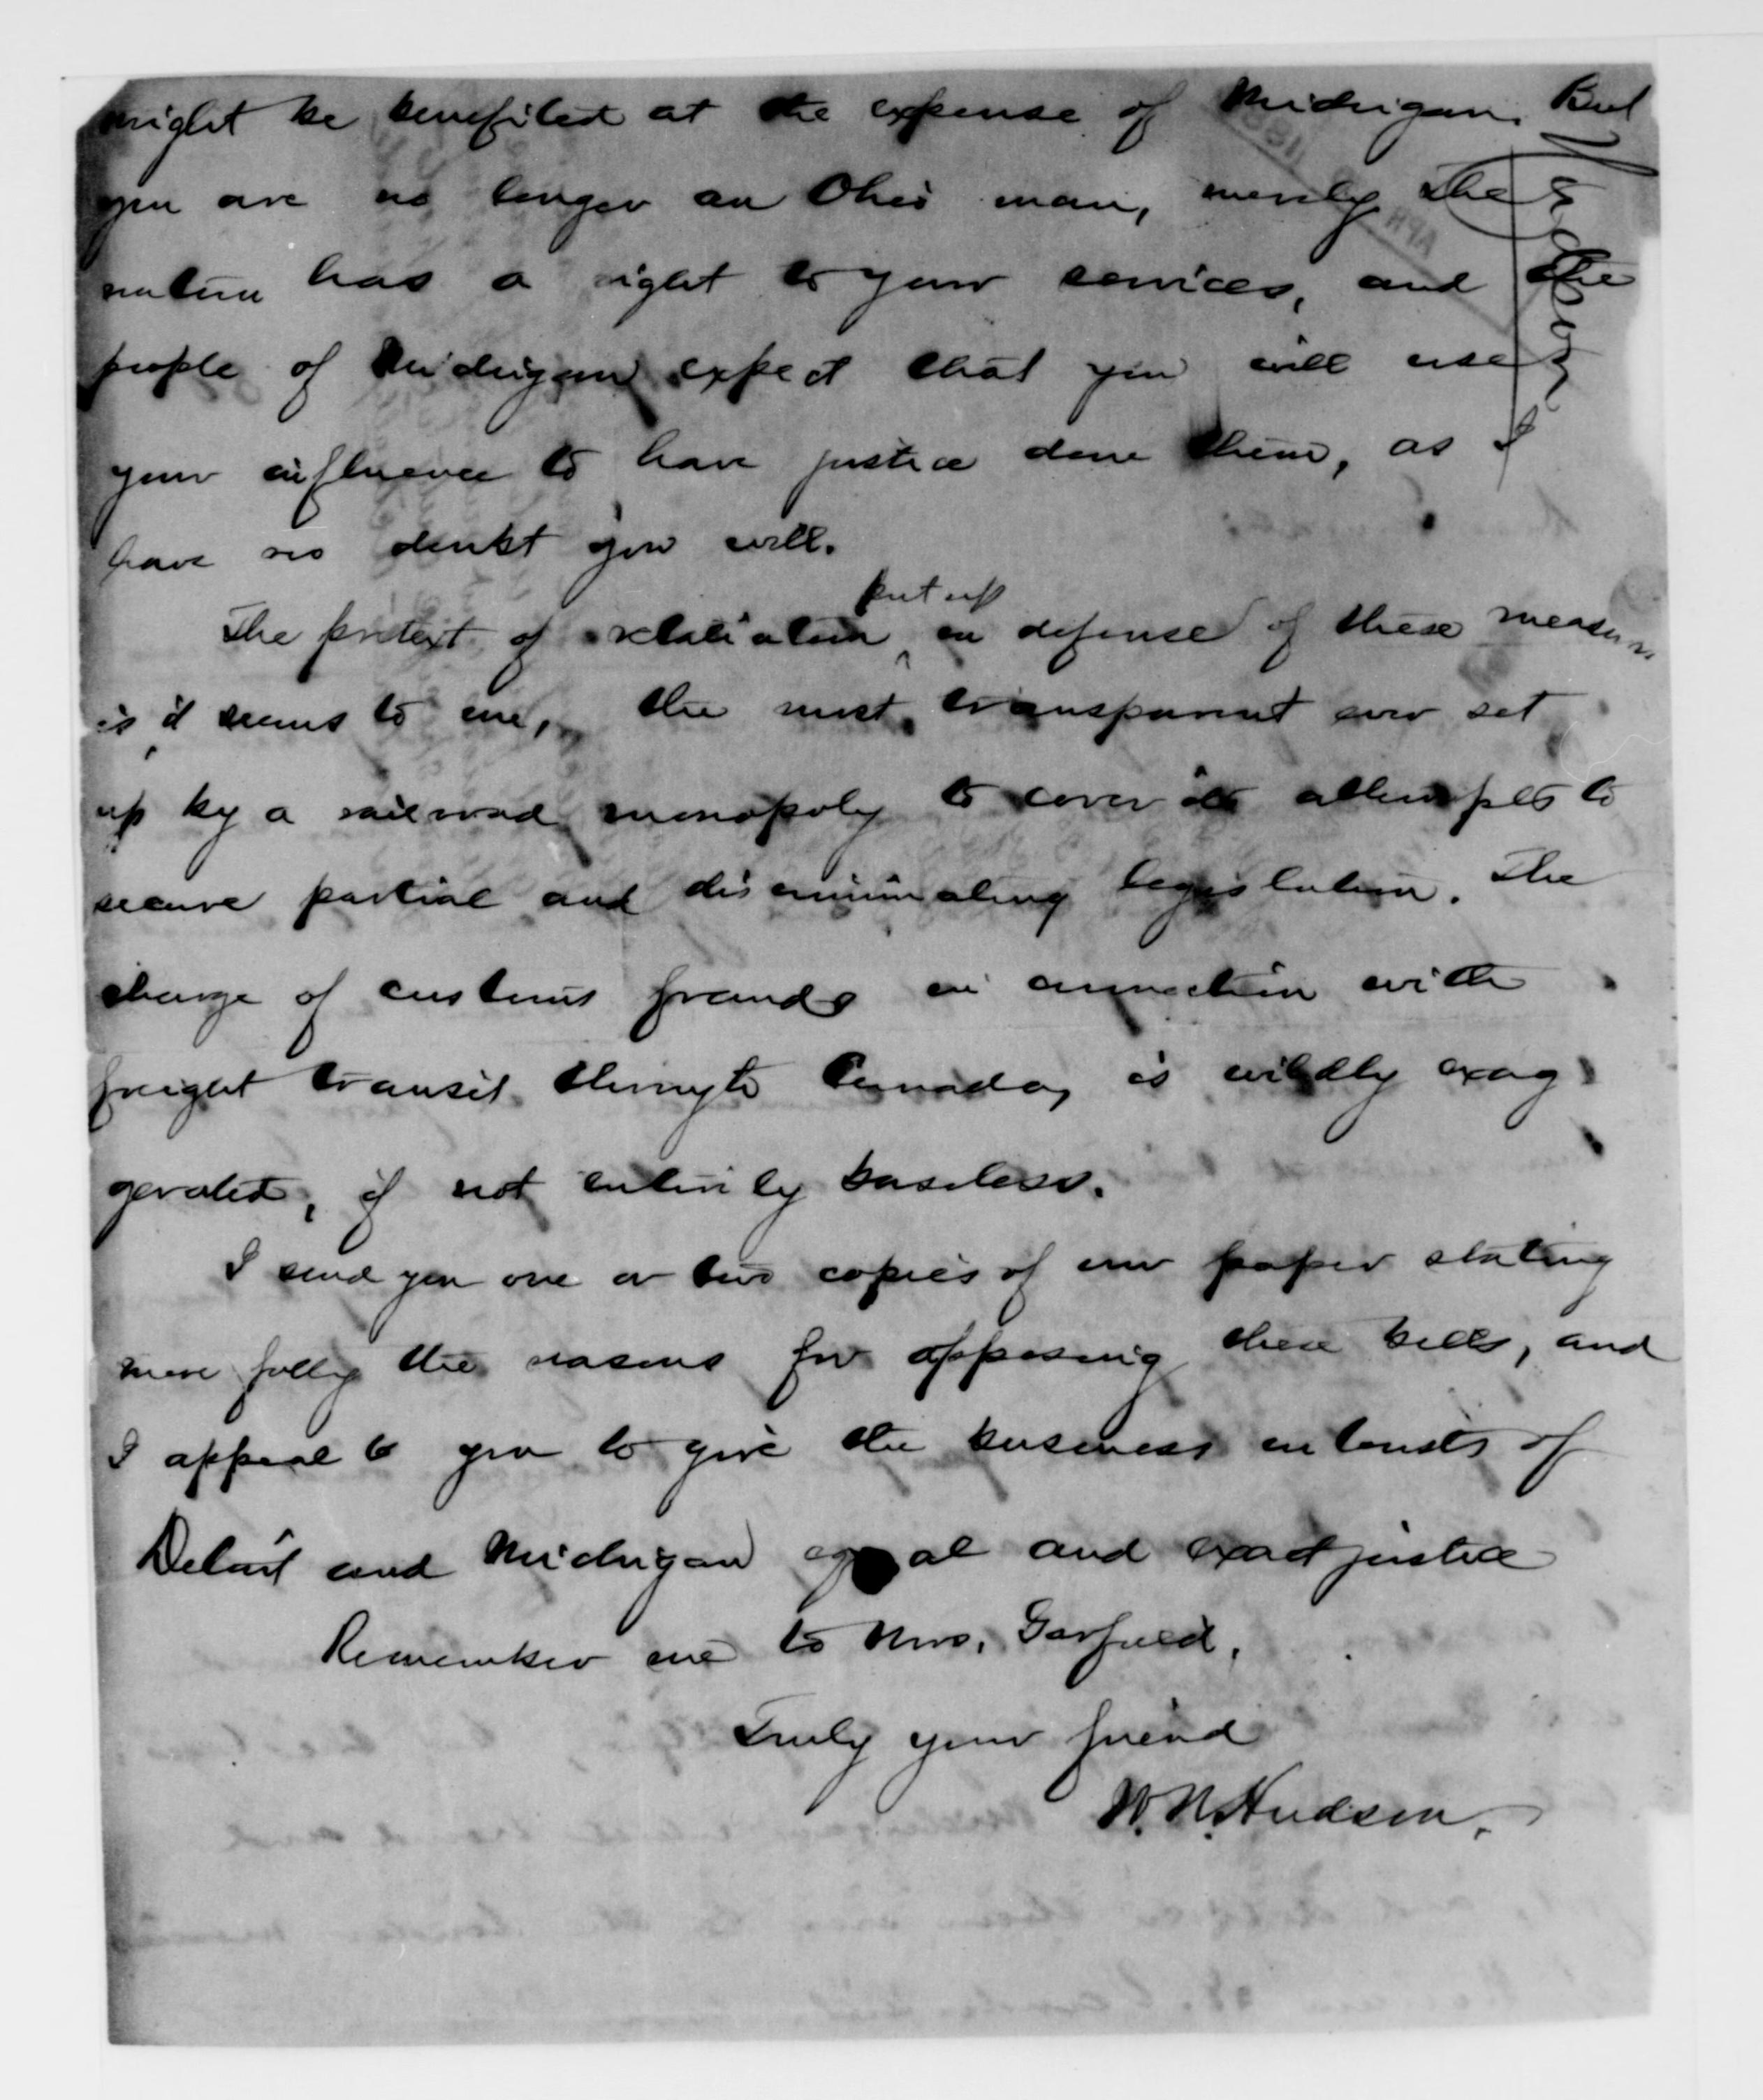 might be benefited at the expense of Michigan. But
you are no longer an Ohio man, merely. The
nation has a right to your services, and the
people of Michigan expect that you will use
your influence to have justice done them, as I
have no doubt you will.
The pretext of retaliation put up in defense of these measures
is it seems to me, the most transparent ever set
up by a railroad monopoly to cover its attempts to
secure partial and discriminating legislation. The
charge of customs frauds in connection with
freight transit through Canada, is wildly exag
gerated, if not entirely baseless.
I send you one or two copies of our paper stating
more fully the reasons for opposing these bills, and
I appeal to you to give the business interests of
Detroit and Michigan equal and exact justice
Remember me to Mrs. Garfield.
Truly your friend
W. N. Hudson.